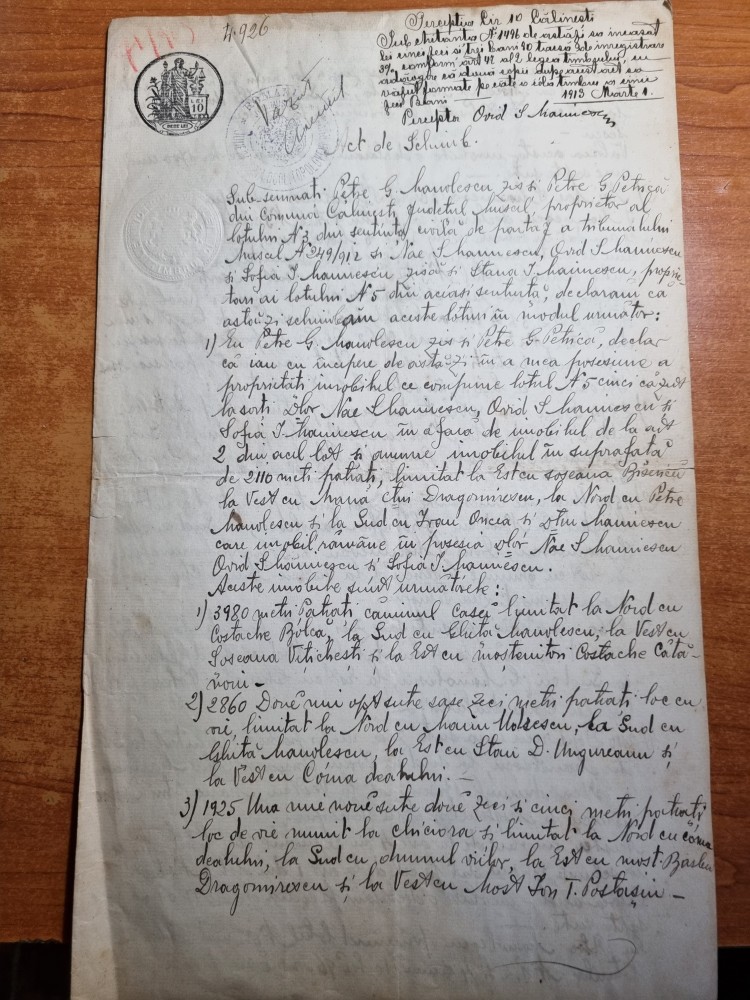 4.926
Percepția Cir 10 Călinesti
Sub chitanta N 1496 de astăzi s'a incasat
lei cinci zeci si trei bani 90 taxa de inregistrare
3% conform art 42 al 2 legea timbrului, cu
adaogire că doua copii după acest act s'a
format pe cate o cola timbru
1913 Marte 1.
Perceptor Ovid S Marinescu
LEI
10
ZECE LEI
Act de Schimb.
Sub semnati Petre G Manolescu zis si Petre G Petrică
din Comuna Călinesti Judetul Muscel, proprietar al
lotului N 3 din sentinta civilă de partaj a tribunalului
Muscel N 249/912 si Nae S Marinescu, Ovid S Marinescu
si Sofia I Marinescu, zisă si Stana I Marinescu, proprie-
tari ai lotului N 5 din aciasi sentintă, declaram ca
astăzi schimbăm aceste loturi in modul următor:
1) Eu Petre G. Manolescu zis si Petre G Petrică, declar
că iau cu incepere de astăzi in a mea posesiune a
proprietăti imobilul ce compune lotul N 5 cinci căzut
la sorti Dlor Nae S Marinescu, Ovid S Marinescu si
Sofia I Marinescu in afară de imobilul de la art
2 din acel lot si anume imobilul in suprafată
de 2110 metri patrati, limitat la Est cu soseaua
la Vest cu Dragomirescu, la Nord cu Petre
Manolescu si la Sud cu Ivan Oncea si Dtru Marinescu
care imobil rămâne in posesia Dlor Nae S Marinescu
Ovid S Marinescu si Sofia I Marinescu.
Aceste imobile sunt următorele:
1) 3980 metri Patrati căminul casei limitat la Nord cu
Costache Bolca, la Sud cu Ghită Manolescu, la Vest cu
Soseaua Vitichesti si la Est cu moștenitori Costache Cătă-
noiu -
2) 2860 Două mii opt sute sase zeci metri patrati loc cu
vie, limitat la Nord cu Marin Udisescu, la Sud cu
Ghită Manolescu, la Est cu Stan D. Ungureanu si
la Vest cu Cóma dealului. -
3) 1925 Una mie nouă sute două zeci si cinci metri patrati
loc de vie numit la chiciora si limitat la Nord cu cóma
dealului, la Sud cu drumul viilor, la Est cu most. Barbu
Dragomirescu si la Vest cu Most Ion T. Postasiu -